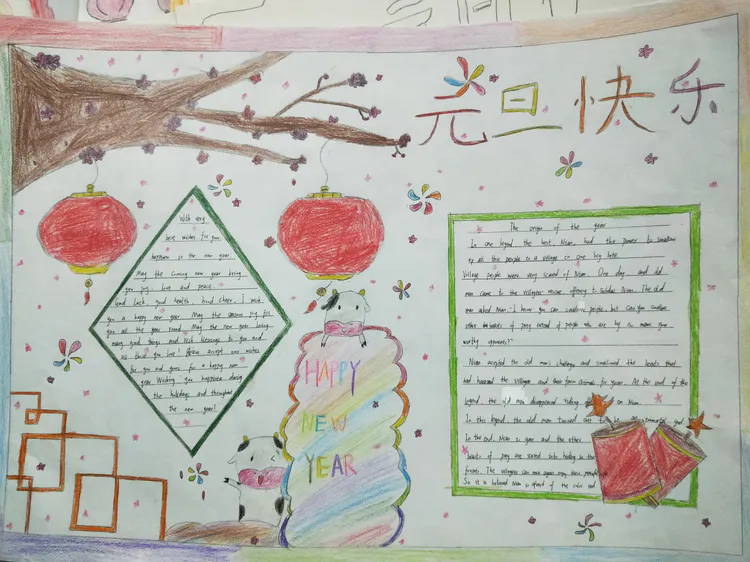 元旦快乐
With very
best wishes for your
happiness in the new year.
May the coming new year bring
you joy, love and peace.
Good luck, good health, hood cheer. I wish
you a happy new year. May the season's joy for
you all the year round. May the new year bring
many good things and rich blessings to you and
all those you love! Please accept our wishes
for you and yours for a happy new
year. Wishing you happiness during
the holidays and throughout
the new year!
HAPPY
NEW
YEAR
The origin of the year
In one legend the best, Nian, had the power to swallow
up all the people in a village in one big bite.
Village people were very scared of Nian. One day, and old
man came to the villagers' rescue, offering to subdue Nian. The old
man asked Nian "I know you can swallow people, but can you swallow
other beasts of prey instead of people who are by no means your
worthy opponents?"
Nian accepted the old man's challenge and swallowed the beasts that
had harassed the villagers and their farm animals for years. At the end of the
legend, the old man disappeared riding off on Nian.
In this legend, the old man turned out to be an immortal god.
In the end, Nian is gone and the other
beasts of prey are scared into hiding in the
forests. The villagers can once again enjoy their peaceful
So it is believed Nian is afraid of the color red